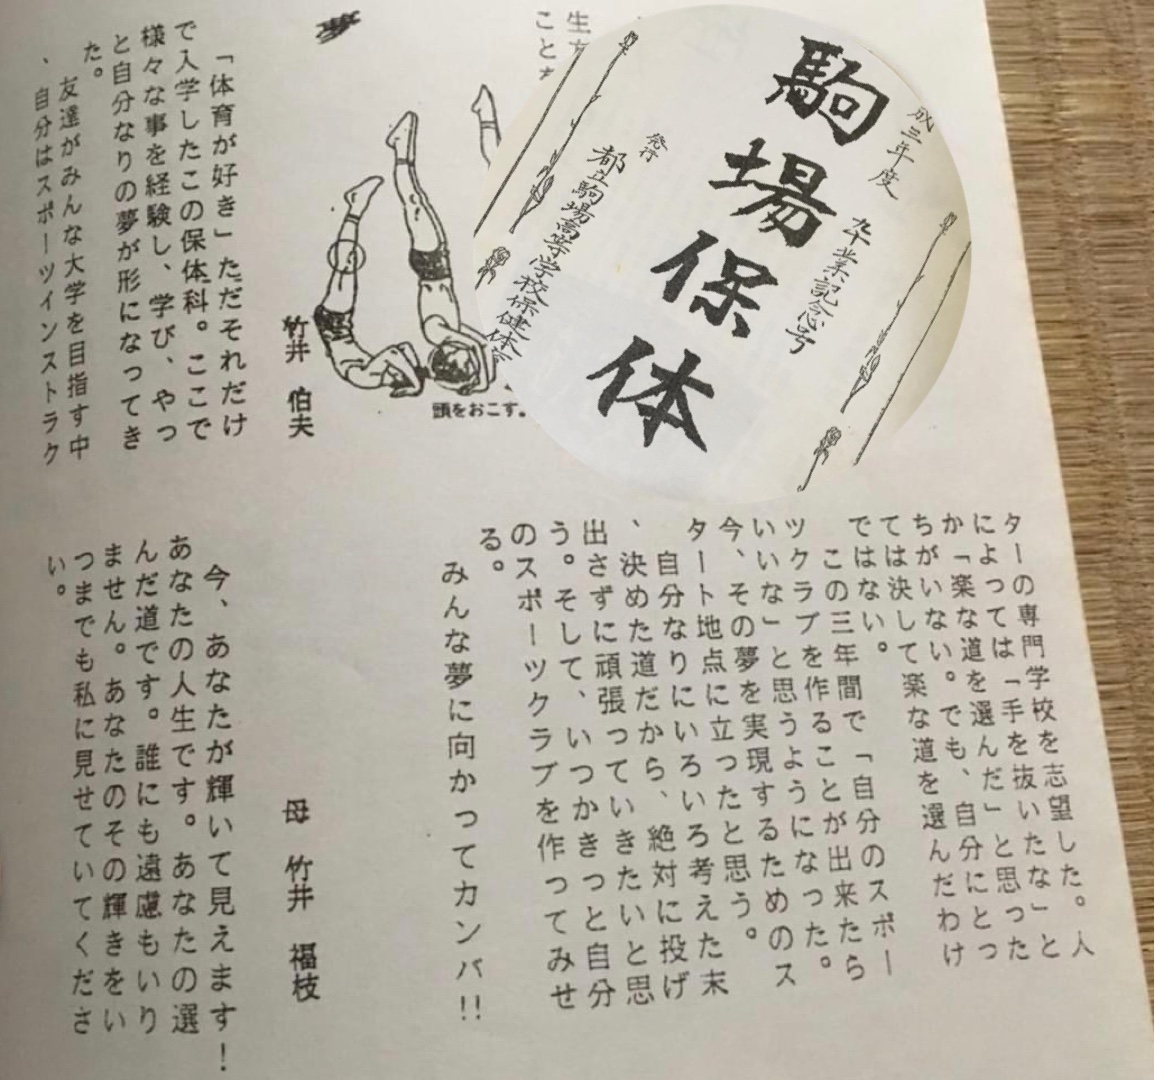 夢
竹井 伯夫
「体育が好き」ただそれだけ
で入学したこの保体科。ここで
様々な事を経験し、学び、やっ
と自分なりの夢が形になってき
た。
友達がみんな大学を目指す中
、自分はスポーツインストラク
ターの専門学校を志望した。人
によっては「手を抜いたな」と
か「楽な道を選んだ」と思った
ちがいない。でも、自分にとっ
ては決して楽な道を選んだわけ
ではない。
この三年間で「自分のスポー
ツクラブを作ることが出来たら
いいな」と思うようになった。
今、その夢を実現するためのス
タート地点に立ったと思う。
自分なりにいろいろ考えた末
、決めた道だから、絶対に投げ
出さずに頑張っていきたいと思
う。そして、いつかきっと自分
のスポーツクラブを作ってみせ
る。
みんな夢に向かってカンバ!!
母 竹井 福枝
今、あなたが輝いて見えます!
あなたの人生です。あなたの選
んだ道です。誰にも遠慮もいり
ません。あなたのその輝きをい
つまでも私に見せていてくださ
い。
頭をおこす。
生
こと
成三年度
卒業記念号
駒場保体
発行
都立駒場高等学校保健体